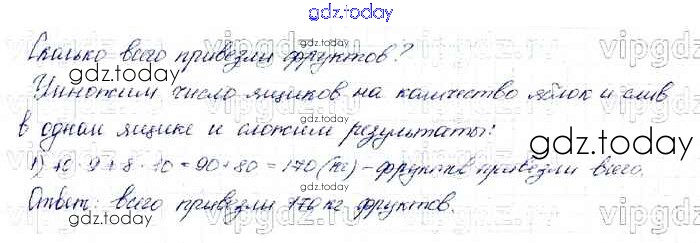 gdz.today
Сколько всего привезли фруктов?
Умножим число ящиков на количество яблок и слив
в одном ящике и сложим результаты:
1) 10 · 9 + 8 · 10 = 90 + 80 = 170 (кг) – фруктов привезли всего.
Ответ: всего привезли 170 кг фруктов.
gdz.today
gdz.today
gdz.today
gdz.today
vipgdz
vipgdz
vipgdz